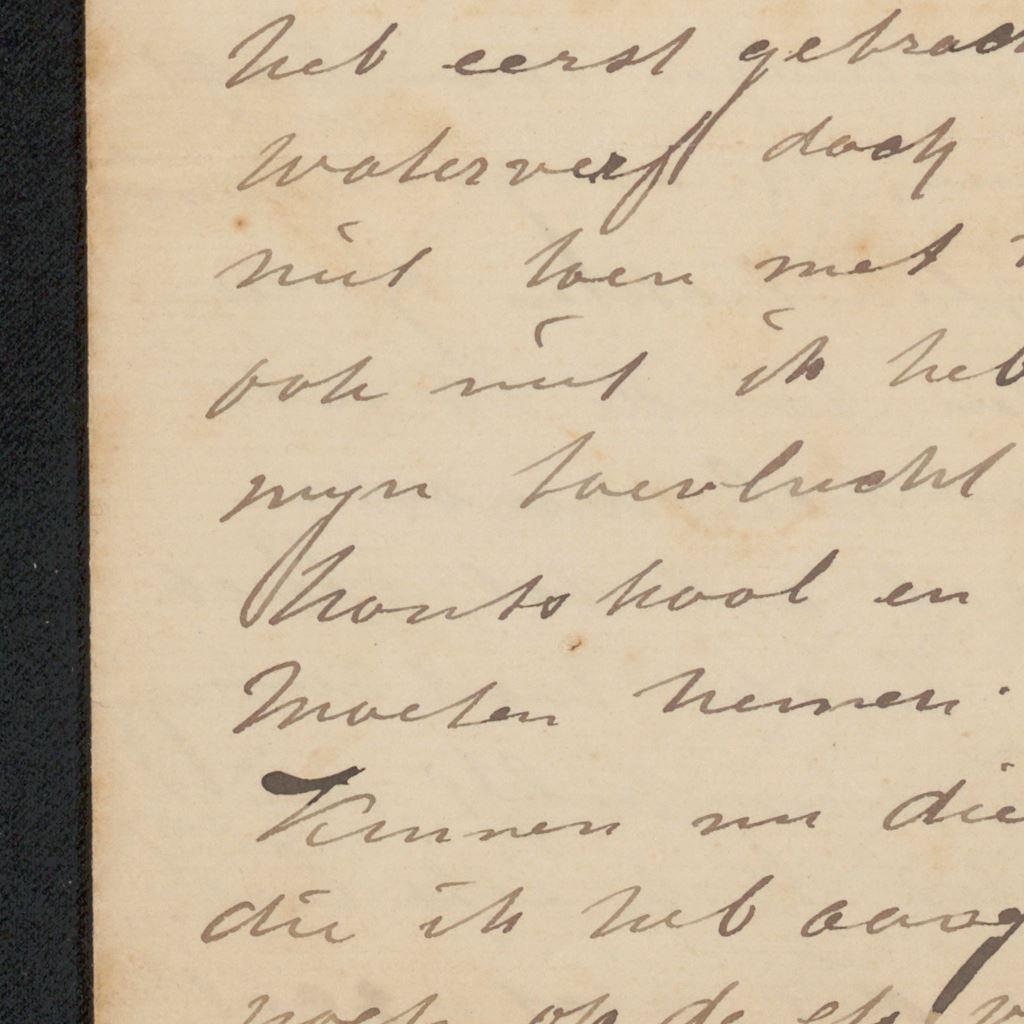 heb eerst gebrach
waterverf doch
niet toen met
ook niet ik heb
myn toevlucht
houtskool en
Moeten nemen.
Kunnen nu die
die ik heb aang
noch op de ets